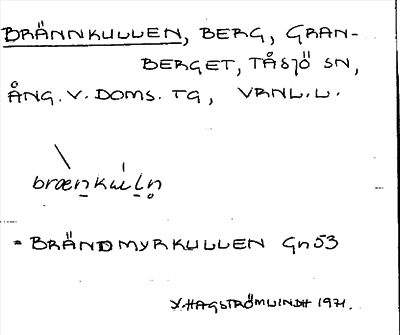 BRÄNNKULLEN, BERG, GRAN-
BERGET, TÅSJÖ SN,
ÅNG. V. DOMS. TG, VRNL. L.
= BRÄNDMYRKULLEN Gn53
V. HAGSTRÖM LINDH 1971.